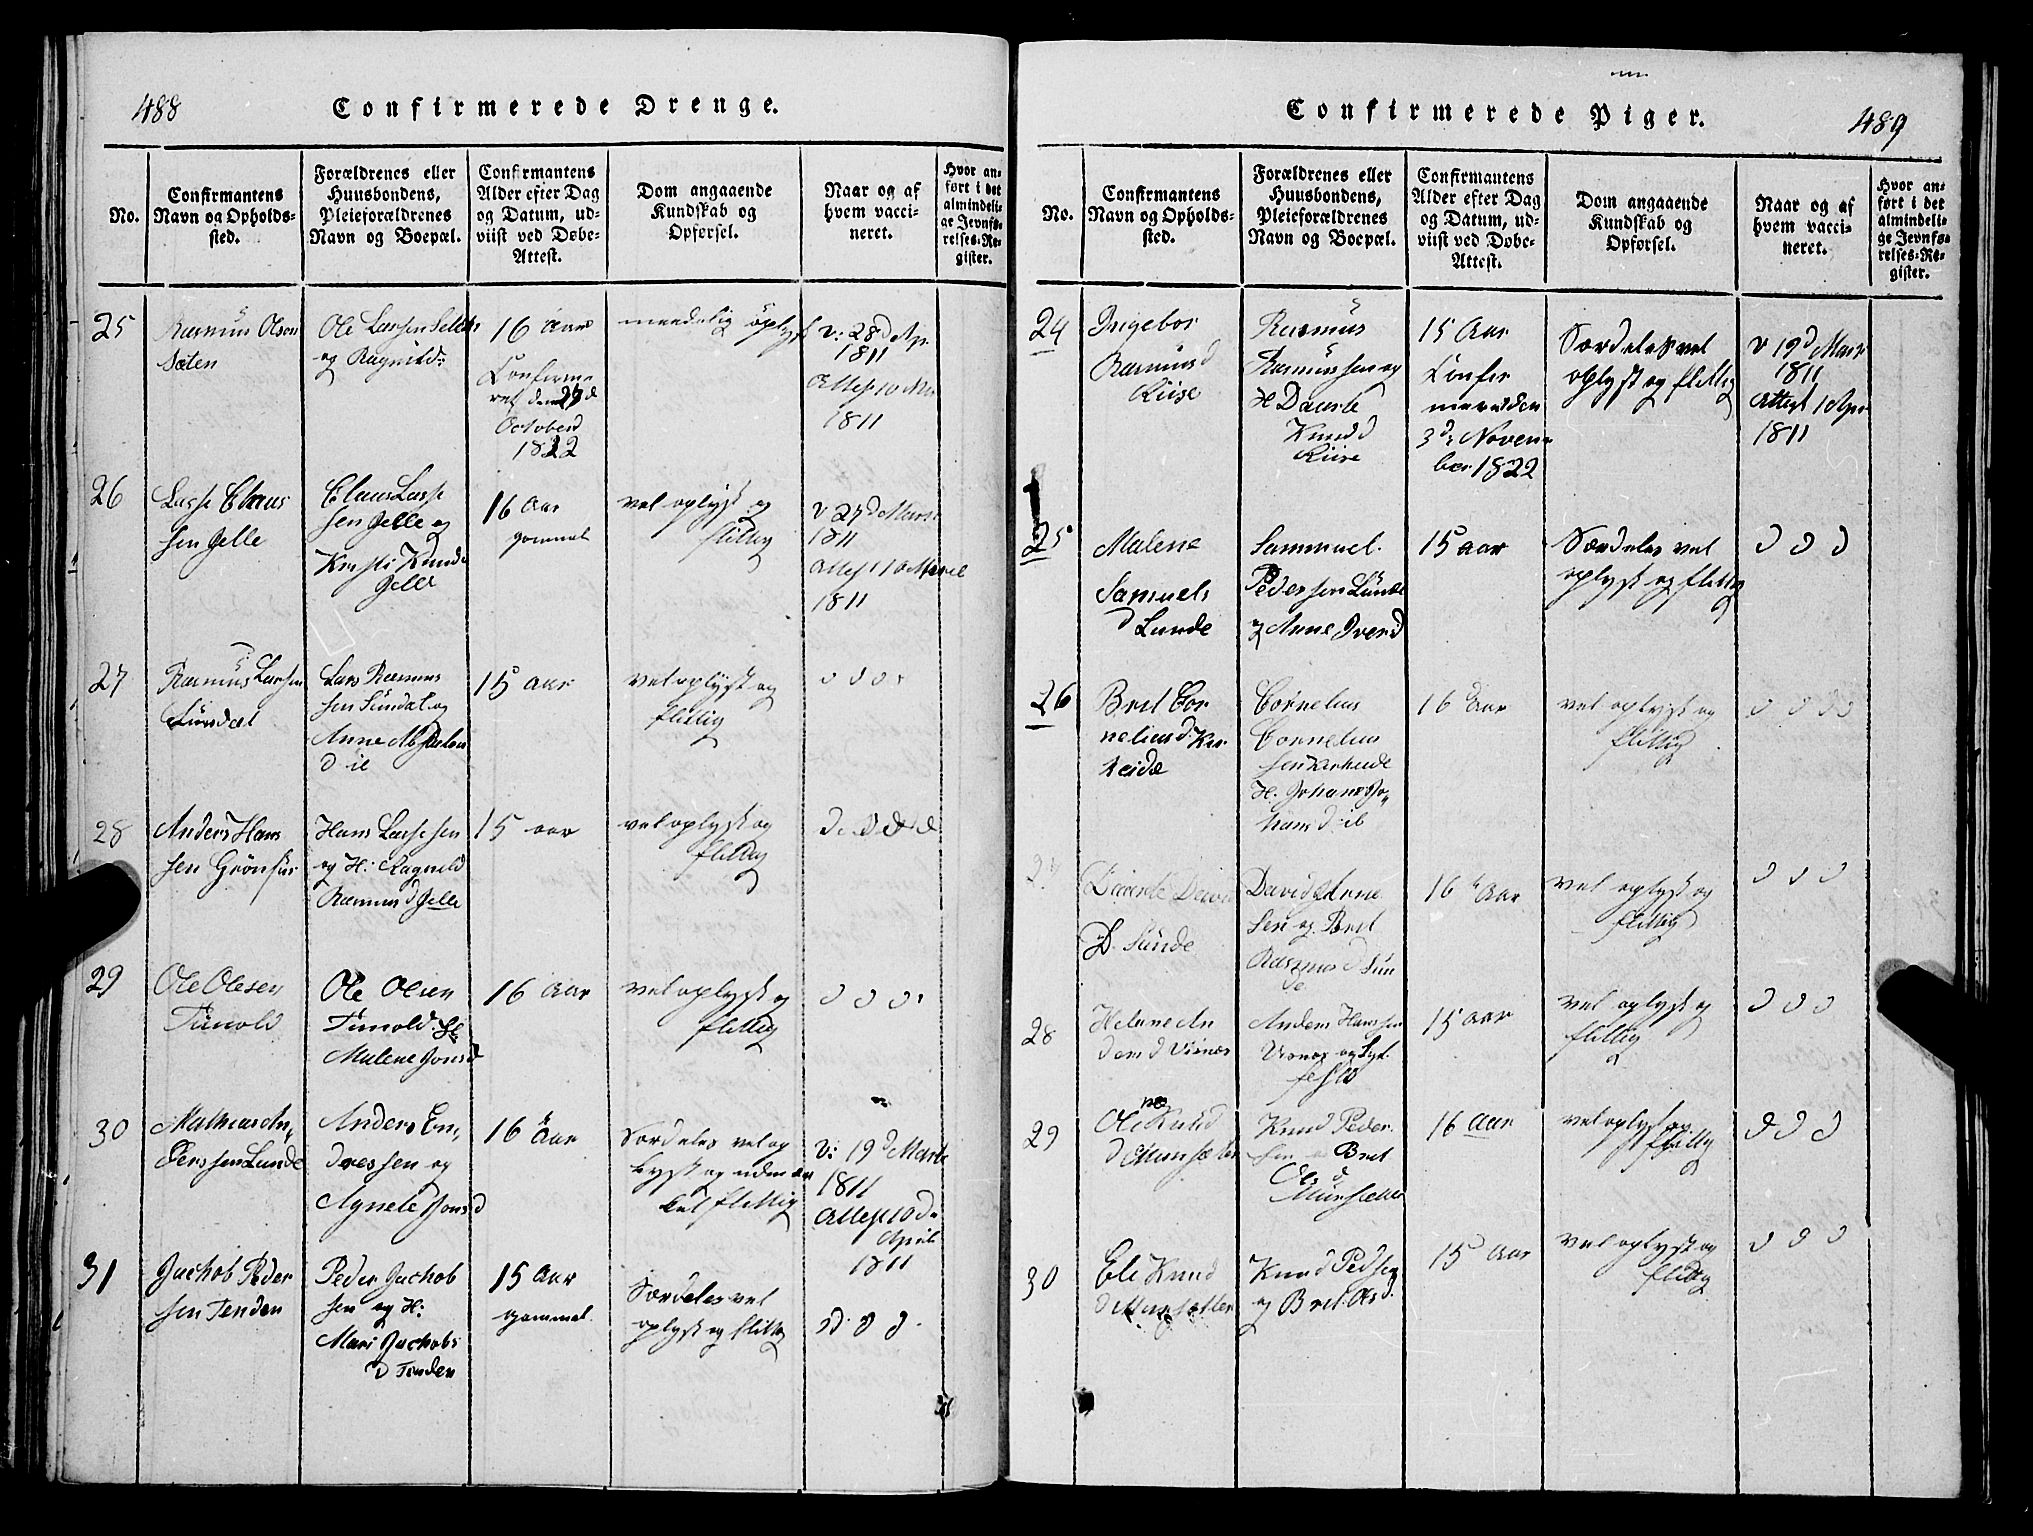 488
Confirmerede Drenge.
No.
Confirmantens
Navn og Opholds-
sted.
Forældrenes eller
Huusbondens,
Pleieforældrenes
Navn og Boepæl.
Confirmantens
Alder efter Dag
og Datum, ud-
viist ved Døbe-
Attest.
Dom angaaende
Kundskab og
Opførsel.
Naar og af
hvem vacci-
neret.
Hvor an-
ført i det
almindeli-
ge Jevnfø-
relses-Re-
gister.
25
Rasmus Olsen
Sæten
Ole Larsen
og Ragnild
16 Aar
Confirme
ret den 27 d
October
1822
maadelig oplyst
v: 28 d Ap.
1811
Attest 10 Mai
1811
26
Lasse Claus
sen Gjelle
Claus Lasse
sen Gjelle og
Kristi Knuds
Gjelle
16 Aar
gammel
vel oplyst og
flittig
v 27 d Marts
1811
Attest 10 April
1811
27
Rasmus Larsen
Sundal
Lars Rasmus
sen Sundal og
Anne Absalons
d ib
15 Aar
vel oplyst og
flittig
d d d
28
Anders Hans
sen Grønfur
Hans Lassesen
og H: Ragneld
Rasmus d Gjelle
15 aar
vel oplyst og
flittig
d d d d
29
Ole Olesen
Tunold
Ole Olsen
Tunold. H:
Malene Jons d
16 Aar
vel oplyst og
flittig
d d d
30
Mathias An-
derssen Lunde
Anders En-
dressen og
Agnete Jons d
16 Aar
Særdeles vel op
lyst og udmær
ket flittig
v: 19 d Marts
1811
Attest 10 d
April
1811
31
Jachob Peder
sen Tenden
Peder Jachob
sen og H:
Mari Jachobs
d Tenden
15 Aar
gammel.
Særdeles vel
oplyst og flittig
d. d d.
Confirmerede Piger.
489
No.
Confirmantens
Navn og Opholds-
sted.
Forældrenes eller
Huusbondens,
Pleieforældrenes
Navn og Boepæl.
Confirmantens
Alder efter Dag
og Datum, ud-
viist ved Døbe-
Attest.
Dom angaaende
Kundskab og
Opførsel.
Naar og af
hvem vacci-
neret.
Hvor an-
ført i det
almindeli-
ge Jevnfø-
relses-Re-
gister.
24
Ingebor
Rasmus d
Riise
Rasmus
Rasmussen og
H Daarte
Knud d
Riise
15 Aar
Confir
meret den
3 d: Novem
ber 1822
Særdeles vel
oplyst og flittig
v 19 d Mars
1811
Attest 1 Apr
1811
25
Malene
Samuels
d Lunde
Sammuel
Pedersen Lunde
og Anne Iver d
15 aar
Særdeles vel
oplyst og flittig
d d d
26
Bret Cor
nelius d Kir
heide
Cornelius
Cornelius
sen Kirheide
H. Johane Jo-
hans d ib
16 Aar
vel oplyst og
flittig
d d d d
27
Daarte David
D. Sunde
David Arne
sen og Bret
Rasmus d Sun
de
16 Aar
vel oplyst og
flittig
d d d
28
Helene An
ders d Visnæs
Anders Hanssen
Visnæs og
15 aar
vel oplyst og
flittig
d d d
29
Oline Knud
d Munsæter
Knud Peder
sen og Bret
Ols d
Munsætter
16 aar
vel oplyst og
flittig
d d d
30
Eli Knud
d Munsetter
Knud Pedsen
og Bret Ols d.
15 Aar
vel oplyst og
flittig
d d d